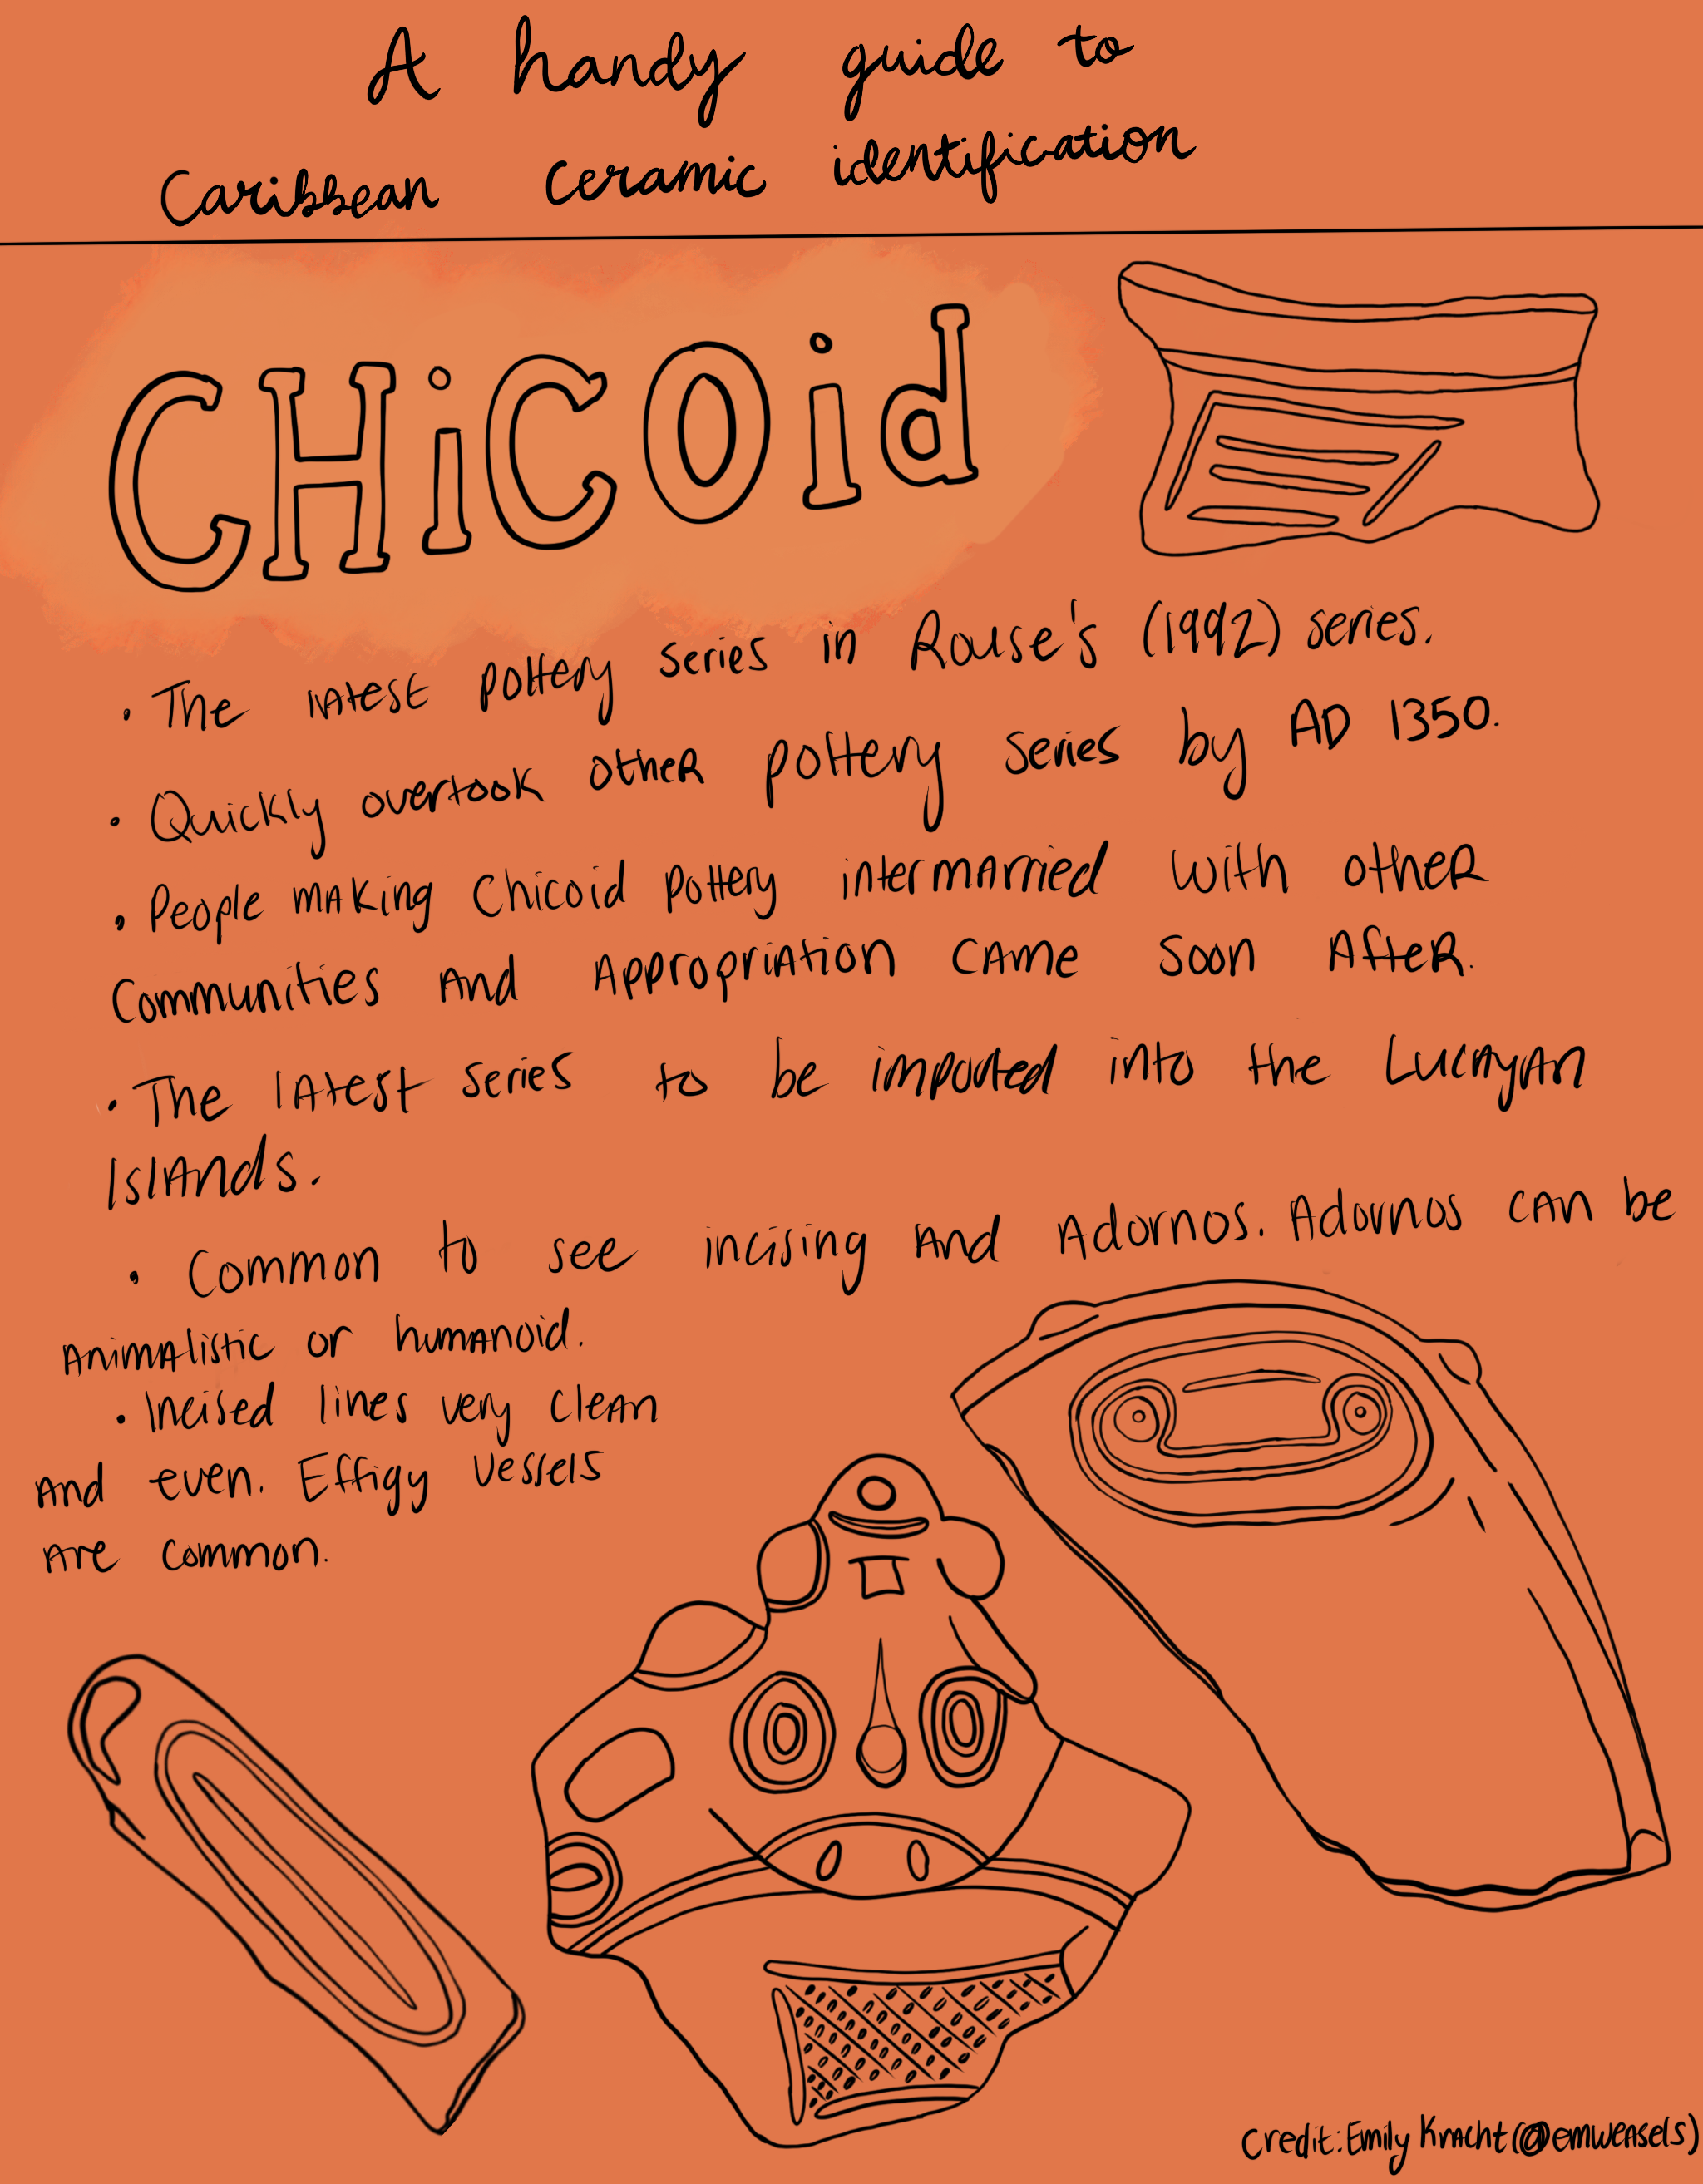 A handy guide to
Caribbean ceramic identification
CHiCOid
• The latest pottery series in Rouse's (1992) series.
• Quickly overtook other pottery series by AD 1350.
• People making Chicoid pottery intermarried with other
communities and appropriation came soon after.
• The latest series to be imported into the Lucayan
Islands.
• Common to see incising and adornos. Adornos can be
animalistic or humanoid.
• Incised lines very clean
and even. Effigy vessels
are common.
Credit: Emily Kracht (@emweasels)